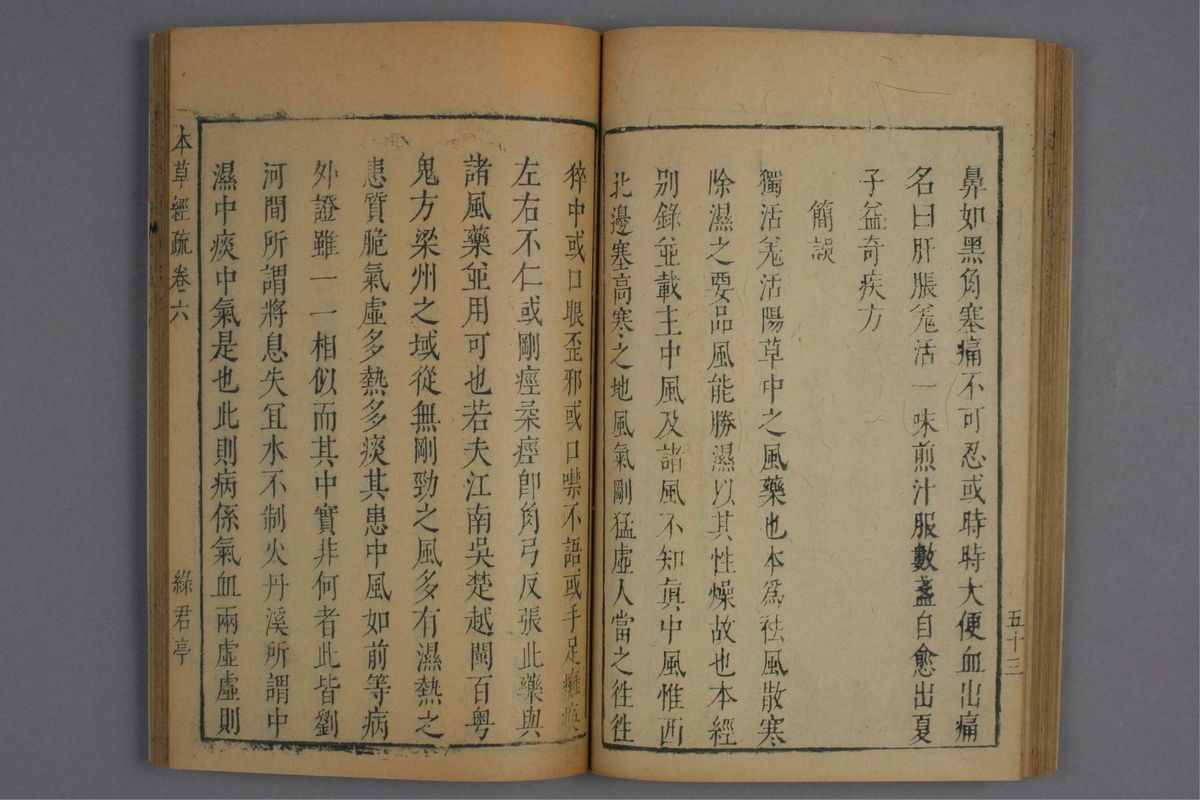 五十三
鼻如黑角塞痛不可忍或時時大便血出痛
名曰肝脹羗活一味煎汁服數盞自愈出夏
子益奇疾方
簡誤
獨活羗活陽草中之風藥也本爲祛風散寒
除濕之要品風能勝濕以其性燥故也本經
別錄並載主中風及諸風不知眞中風惟西
北邊塞高寒之地風氣剛猛虛人當之徃徃
猝中或口眼歪邪或口噤不語或手足癱瘓
左右不仁或剛痙柔痙卽角弓反張此藥與
諸風藥並用可也若夫江南吳楚越閩百粤
鬼方梁州之域從無剛勁之風多有濕熱之
患質脆氣虛多熱多痰其患中風如前等病
外證雖一一相似而其中實非何者此皆劉
河間所謂將息失宜水不制火丹溪所謂中
濕中痰中氣是也此則病係氣血兩虛虛則
本草經疏卷六
綠君亭